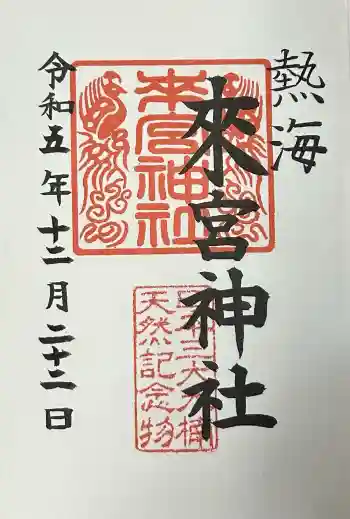 熱海
來宮神社
令和五年十二月二十二日
來宮神社
天然記念物